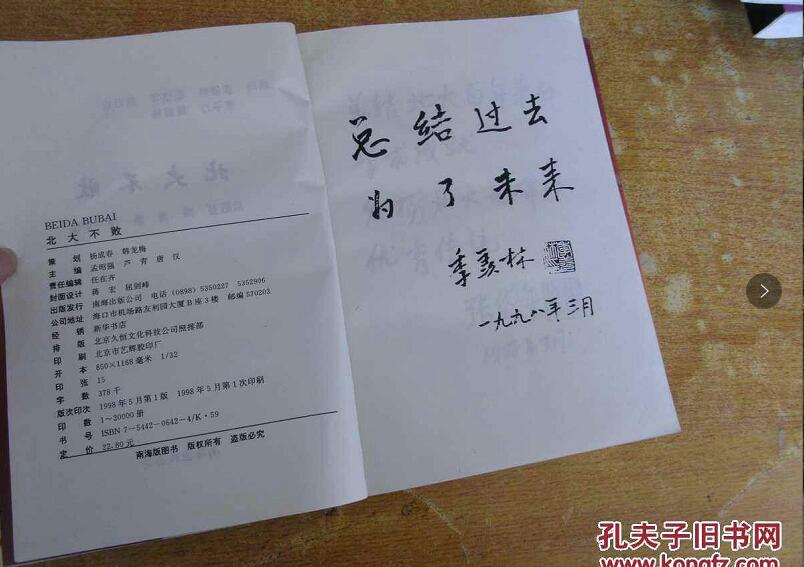 BEIDA BUBAI
北大不败
策 划 杨成春 韩龙梅
主 编 孟昭强 芦青 唐汉
责任编辑 任在齐
封面设计 蒋宏 屈剑峰
出版发行 南海出版公司 电话(0898)5350227 5352906
公司地址 海口市机场路友利园大厦B座3楼 邮编570203
经 销 新华书店
排 版 北京久恒文化科技公司照排部
印 刷 北京市艺辉胶印厂
开 本 850×1168毫米 1/32
印 张 15
字 数 378千
版次印次 1998年5月第1版 1998年5月第1次印刷
印 数 1~20000册
书 号 ISBN 7-5442-0642-4/K·59
定 价 22.80元
南海版图书 版权所有 盗版必究
总结过去
为了未来
季羡林
一九九八年三月
孔夫子旧书网
www.kongfz.com